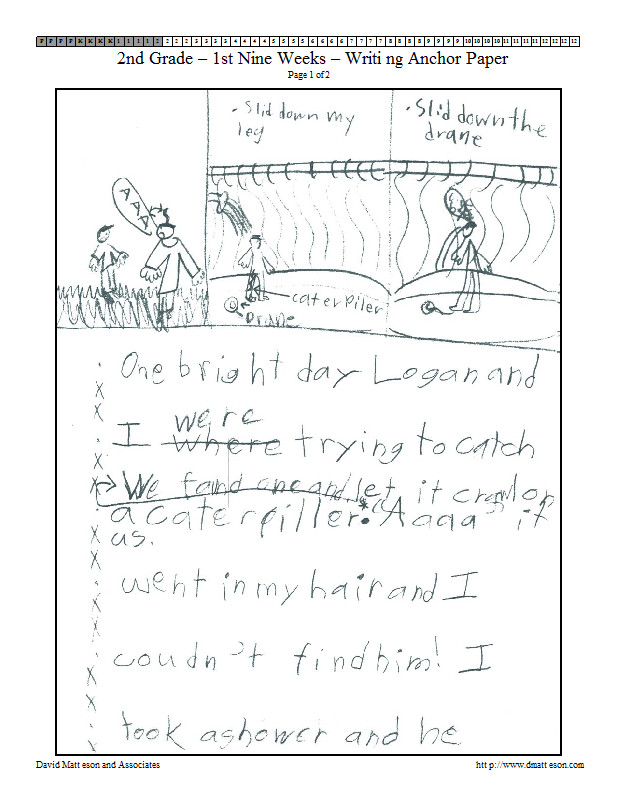 P P P P K K K K 1 1 1 1 2 2 2 2 3 3 3 3 4 4 4 4 5 5 5 5 6 6 6 6 7 7 7 7 8 8 8 8 9 9 9 9 10 10 10 10 11 11 11 11 12 12 12 12
2nd Grade – 1st Nine Weeks – Writi ng Anchor Paper
Page 1 of 2
• Slid down my
leg
• Slid down the
drane
AAAA
caterpiler
Drane
One bright day Logan and
were
I where trying to catch
We fand one and let it crawl on
a caterpiller. "Aaaa" it
us.
went in my hair and I
coudn't find him! I
took a shower and he
David Matt eson and Associates
htt p://www.dmatt eson.com